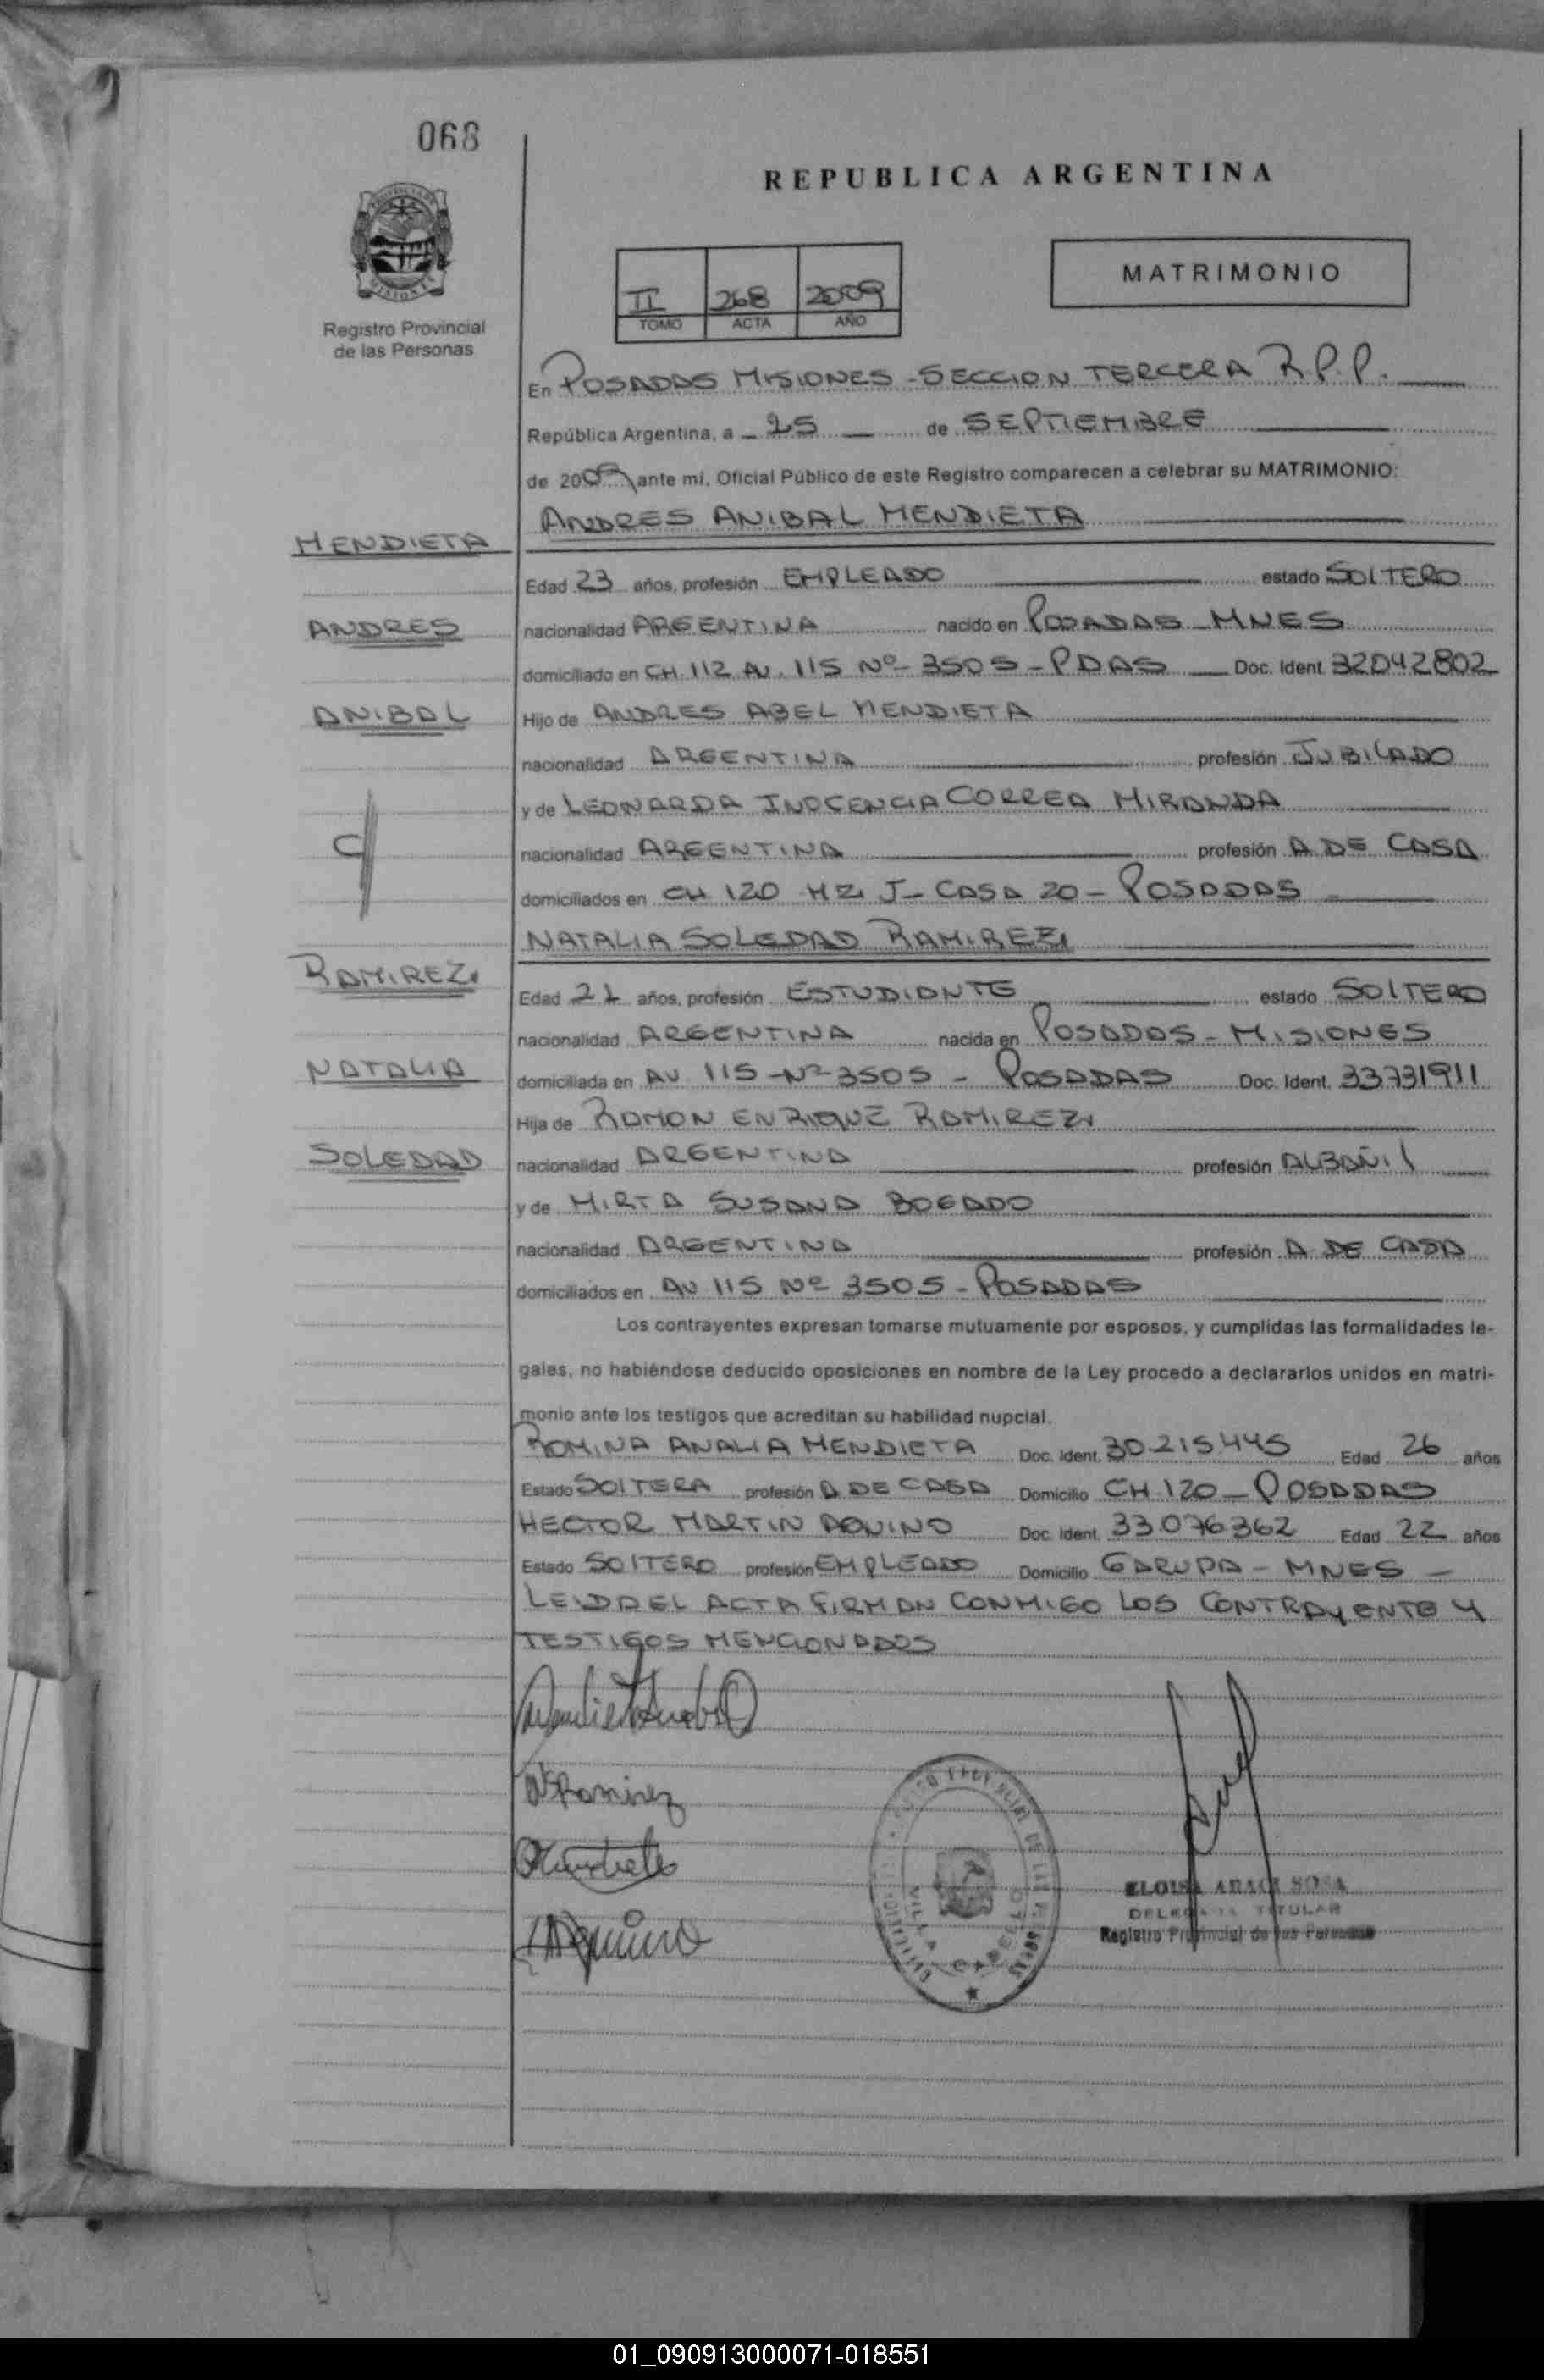 068
REPUBLICA ARGENTINA
MATRIMONIO
II 268 2009
TOMO ACTA AÑO
Registro Provincial
de las Personas
En POSADAS MISIONES - SECCION TERCERA R.P.P.
República Argentina, a - 25 de SEPTIEMBRE
de 2009 ante mi, Oficial Público de este Registro comparecen a celebrar su MATRIMONIO:
ANDRES ANIBAL MENDIETA
MENDIETA
Edad 23 años, profesión EMPLEADO estado SOLTERO
ANDRES nacionalidad ARGENTINA nacido en POSADAS - MNES
domiciliado en CH. 112 AV. 115 Nº 3505 - PDAS Doc. Ident. 32042802
ANIBAL Hijo de ANDRES ABEL MENDIETA
nacionalidad ARGENTINA profesión JUBILADO
y de LEONARDA INOCENCIA CORREA MIRANDA
C/ nacionalidad ARGENTINA profesión A DE CASA
domiciliados en CH 120 MZ J - CASA 20 - POSADAS
NATALIA SOLEDAD RAMIREZ
RAMIREZ
Edad 21 años, profesión ESTUDIANTE estado SOLTERO
nacionalidad ARGENTINA nacida en POSADAS - MISIONES
NATALIA domiciliada en AV 115 - Nº 3505 - POSADAS Doc. Ident. 33731911
Hija de RAMON ENRIQUE RAMIREZ
SOLEDAD nacionalidad ARGENTINA profesión ALBAÑIL
y de MIRTA SUSANA BOGADO
nacionalidad ARGENTINA profesión A DE CASA
domiciliados en AV 115 Nº 3505 - POSADAS
Los contrayentes expresan tomarse mutuamente por esposos, y cumplidas las formalidades le-
gales, no habiéndose deducido oposiciones en nombre de la Ley procedo a declararlos unidos en matri-
monio ante los testigos que acreditan su habilidad nupcial.
ROMINA ANALIA MENDIETA Doc. Ident. 30.215.445 Edad 26 años
Estado SOLTERA profesión A DE CASA Domicilio CH 120 - POSADAS
HECTOR MARTIN AQUINO Doc. Ident. 33.076.362 Edad 22 años
Estado SOLTERO profesión EMPLEADO Domicilio GARUPA - MNES -
LEIDA EL ACTA FIRMAN CONMIGO LOS CONTRAYENTE Y
TESTIGOS MENCIONADOS
N Ramirez
Aquino
VILLA CABELLO
ELOISA ARACI SOSA
DELEGADA TITULAR
Registro Provincial de las Personas
01_090913000071-018551